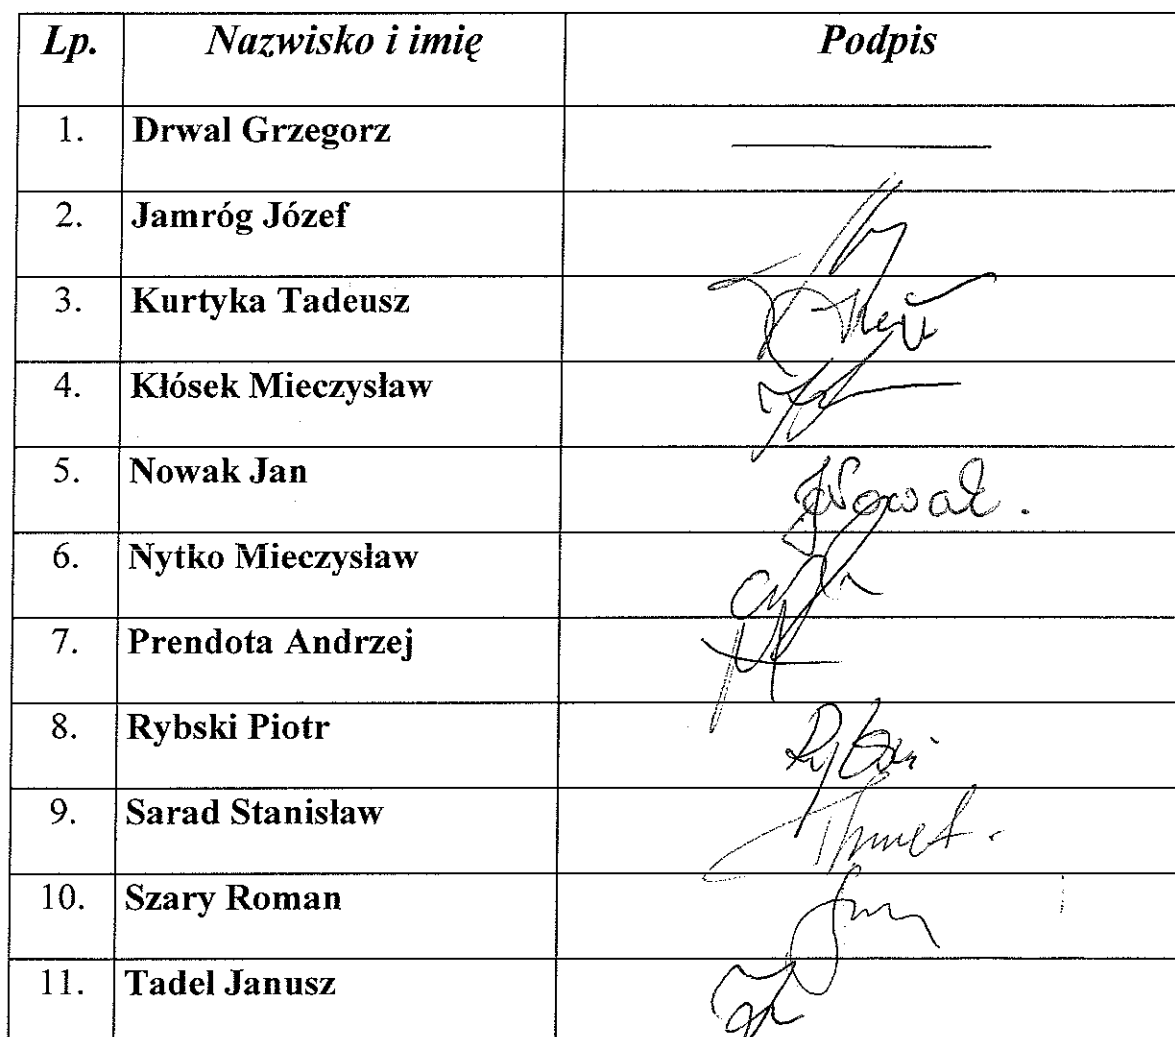 Lp. Nazwisko i imię Podpis
1. Drwal Grzegorz
2. Jamróg Józef
3. Kurtyka Tadeusz
4. Kłósek Mieczysław
5. Nowak Jan JNowak.
6. Nytko Mieczysław
7. Prendota Andrzej
8. Rybski Piotr Rybski
9. Sarad Stanisław
10. Szary Roman
11. Tadel Janusz